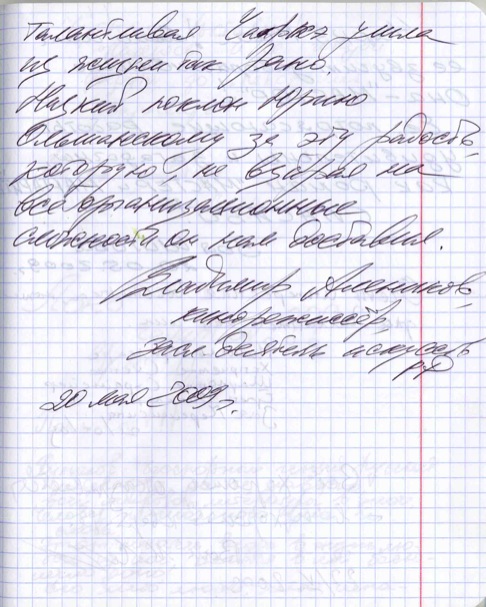 Талантливая Чаржэ ушла
из жизни так рано.
Низкий поклон Юрию
Ольшанскому за эту радость,
которую, не взирая на
все организационные
сложности он нам доставил.
Владимир Алеников,
кинорежиссёр,
засл. деятель искусств
РФ
20 мая 2009 г.